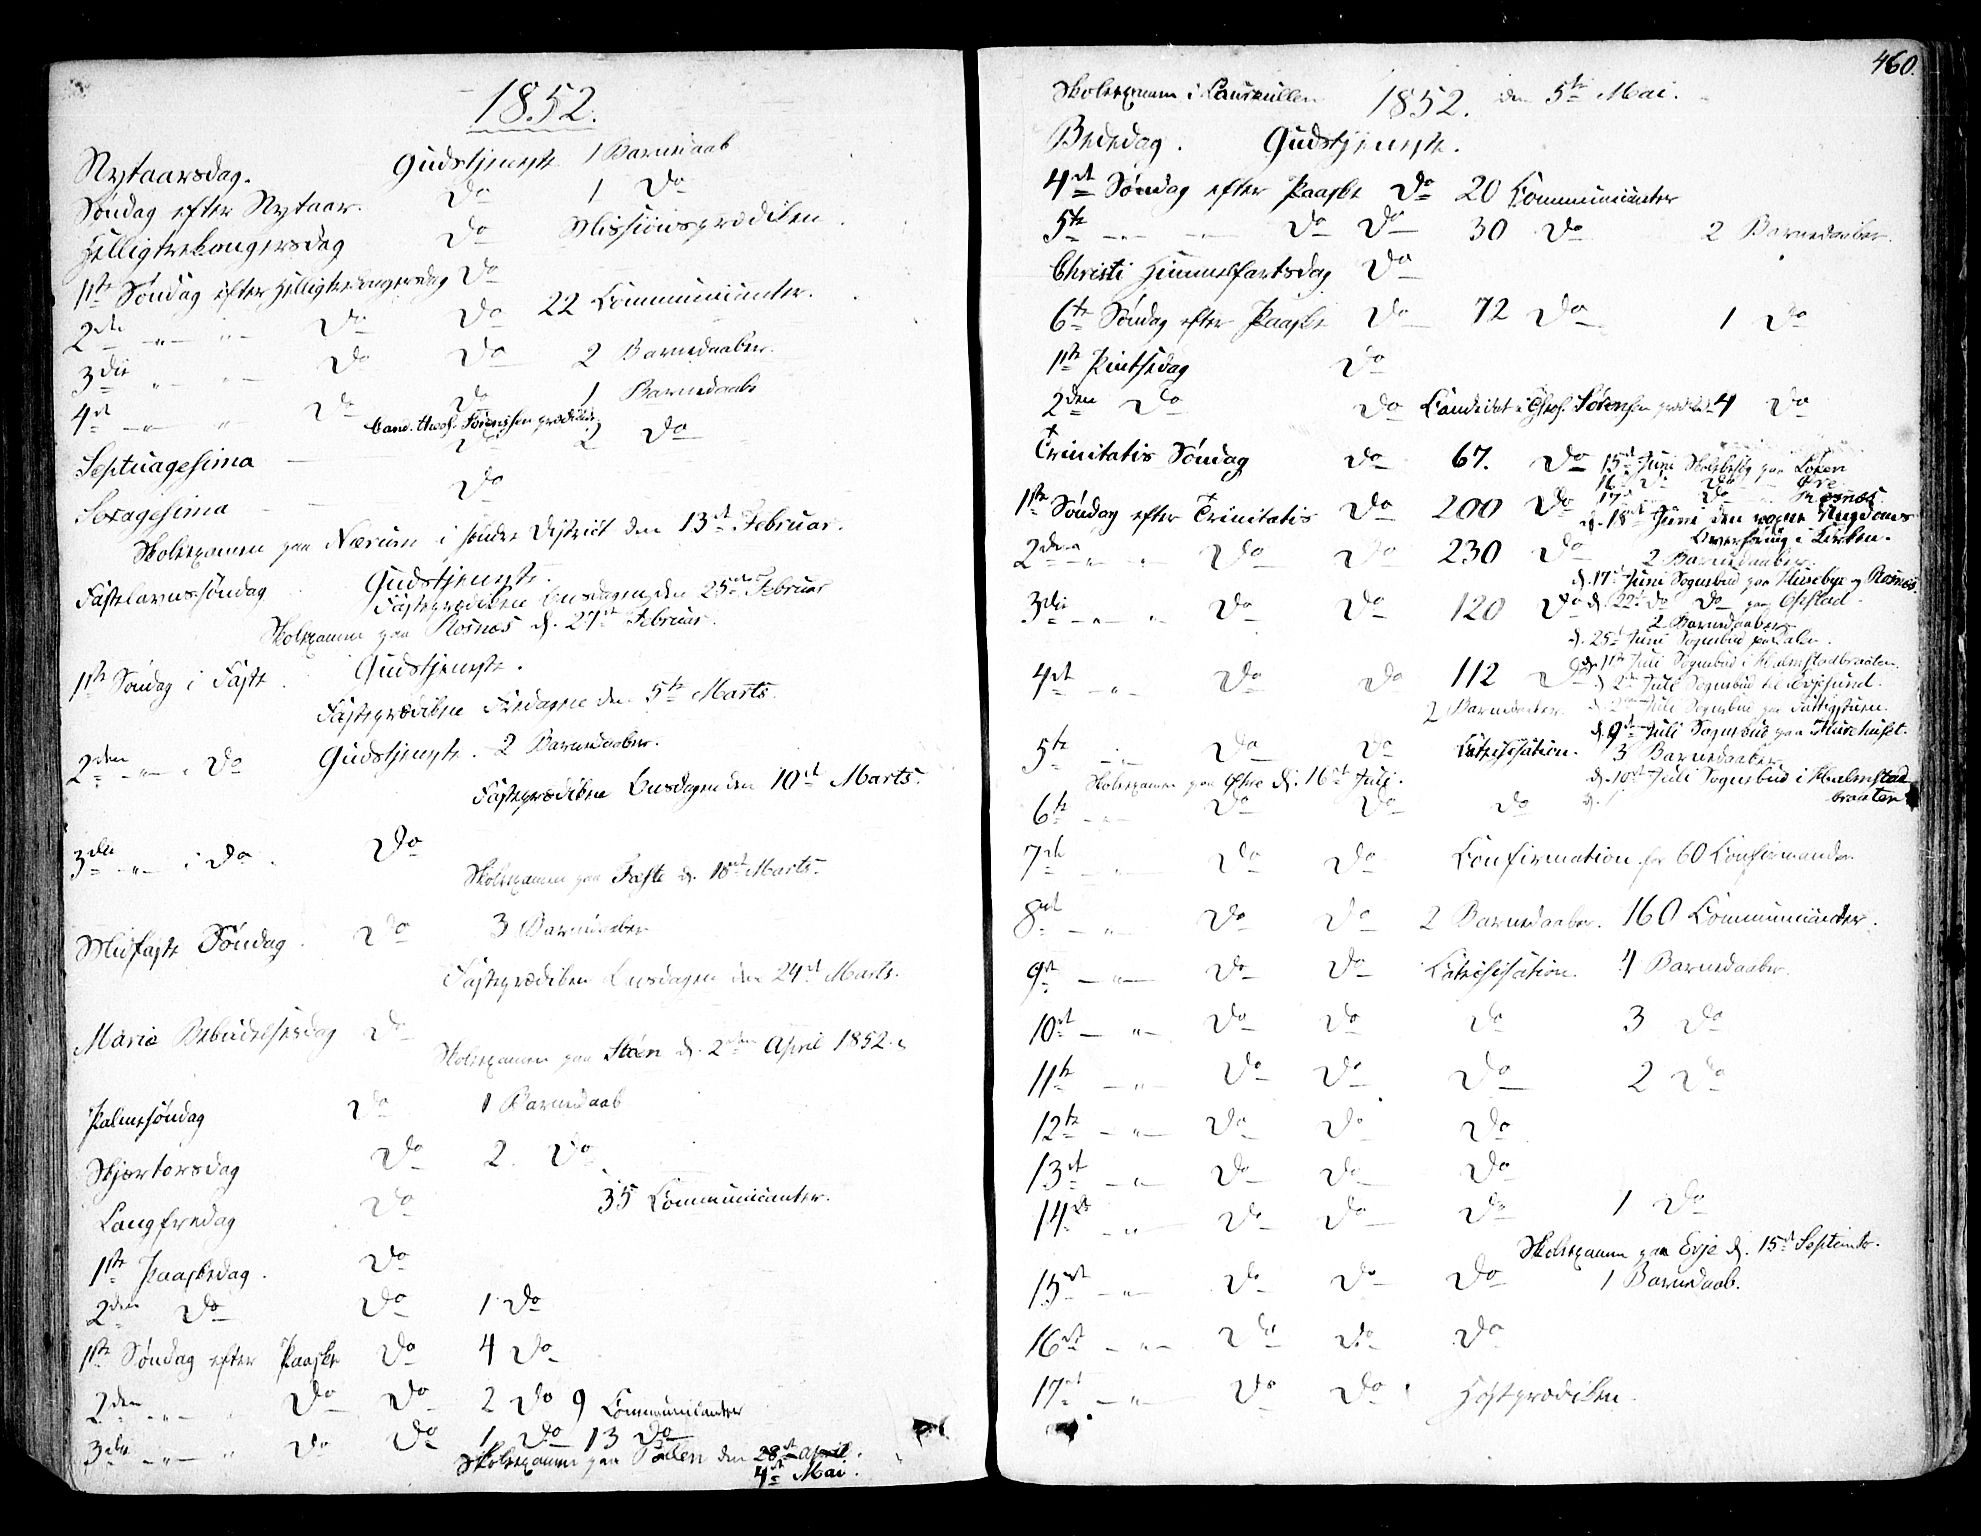 1852.
Nytaarsdag. Gudstjeneste 1 Barnedaab
Søndag efter Nytaar. Do 1 Do
Helligtrekongersdag Do Missionsprædiken.
1ste Søndag efter Helligtrekongersdag Do
2den -"- -"- Do Do 22 Communicanter.
3die -"- -"- Do Do 2 Barnedaaber.
4de -"- " Do Do 1 Barnedaab
Cand. theol. Sørenssen prædikede
Septuagesima Do 2 Do
Sexagesima Do
Skolexamen paa Nærum i søndre District den 13de Februar.
Fastelavnssøndag Gudstjeneste.
Fasteprædiken Onsdagen den 25de Februar
Skolexamen paa Rosnæs d. 27de Februar.
1ste Søndag i Faste. Gudstjeneste.
Fasteprædiken Fredagen den 5te Marts.
2den -"- i Do Gudstjeneste. 2 Barnedaaber.
Fasteprædiken Onsdagen den 10de Marts.
3die -"- i Do. Do
Skolexamen paa Faste d. 18de Marts.
Midfaste Søndag. Do 3 Barnedaaber
Fasteprædiken Onsdagen den 24de Marts.
Mariæ Bebudelsesdag Do
Skolexamen paa Steen d. 2den April 1852.
Palmesøndag Do 1 Barnedaab
Skjærtorsdag Do 2. Do
Langfredag Do 35 Communicanter.
1ste Paaskedag. Do
2den Do Do 1 Do
1ste Søndag efter Paaske Do 4 Do
2den -"- " Do Do 2 Do 9 Communicanter
3die -"- " Do Do 1 Do 13 Do
Skolexamen paa den 28de April.
4de Mai.
460.
Skolexamen i 1852. den 5te Mai.
Bededag. Gudstjeneste.
4de Søndag efter Paaske Do 20 Communicanter
5te -"- -"- Do Do 30 Do 2 Barnedaaber.
Christi Himmelfartsdag Do
6te Søndag efter Paaske Do 72 Do 1 Do
1ste Pintsedag Do
2den Do Do Candidat Theol. Sørensen prædikede 4 Do
Trinitatis Søndag Do 67. Do 15de Juni Skolebesøg paa Løken
16de Do Do Øre
17de Do Rosnæs
1ste Søndag efter Trinitatis Do 200 Do d. 18de Juni den Ungdoms
Overhøring i Kirken.
2den -"- " Do Do 230 Do 2 Barnedaaber.
d. 17de Juni Sognebud paa Huseby og Rosnæs.
3die -"- " Do Do 120 Do d. 22de Do Do paa Opstad.
2 Barnedaaber
d. 25de Juni Sognebud paa
4de -"- Do Do 112 Do d. 1ste Juli Sognebud i Hulmstadbraaten.
d. 2den Juli Sognebud til
2 Barnedaaber. d. 2den Juli Sognebud paa Fattigstuen.
d. 9de Juli Sognebud paa Murehuset.
5te -"- Do Do Catechisation. 3 Barnedaaber
Skolexamen paa Øhre d. 16de Juli. d. 10de Juli Sognebud i Hulmstad
braaten
6te -"- Do Do Do
7de -"- Do Do Confirmation for 60 Confirmander
8de -"- Do Do 2 Barnedaaber. 160 Communicanter.
9de -"- Do Do Catechisation. 4 Barnedaaber.
10de -"- Do Do Do 3 Do
11te -"- Do Do Do 2 Do
12te -"- Do Do Do
13de -"- Do Do Do
14de -"- Do Do Do 1 Do
Skolexamen paa Evje d. 15de Septembr.
15de -"- Do Do Do 1 Barnedaab.
16de -"- Do Do Do
17de -"- Do Do Høstprædiken.